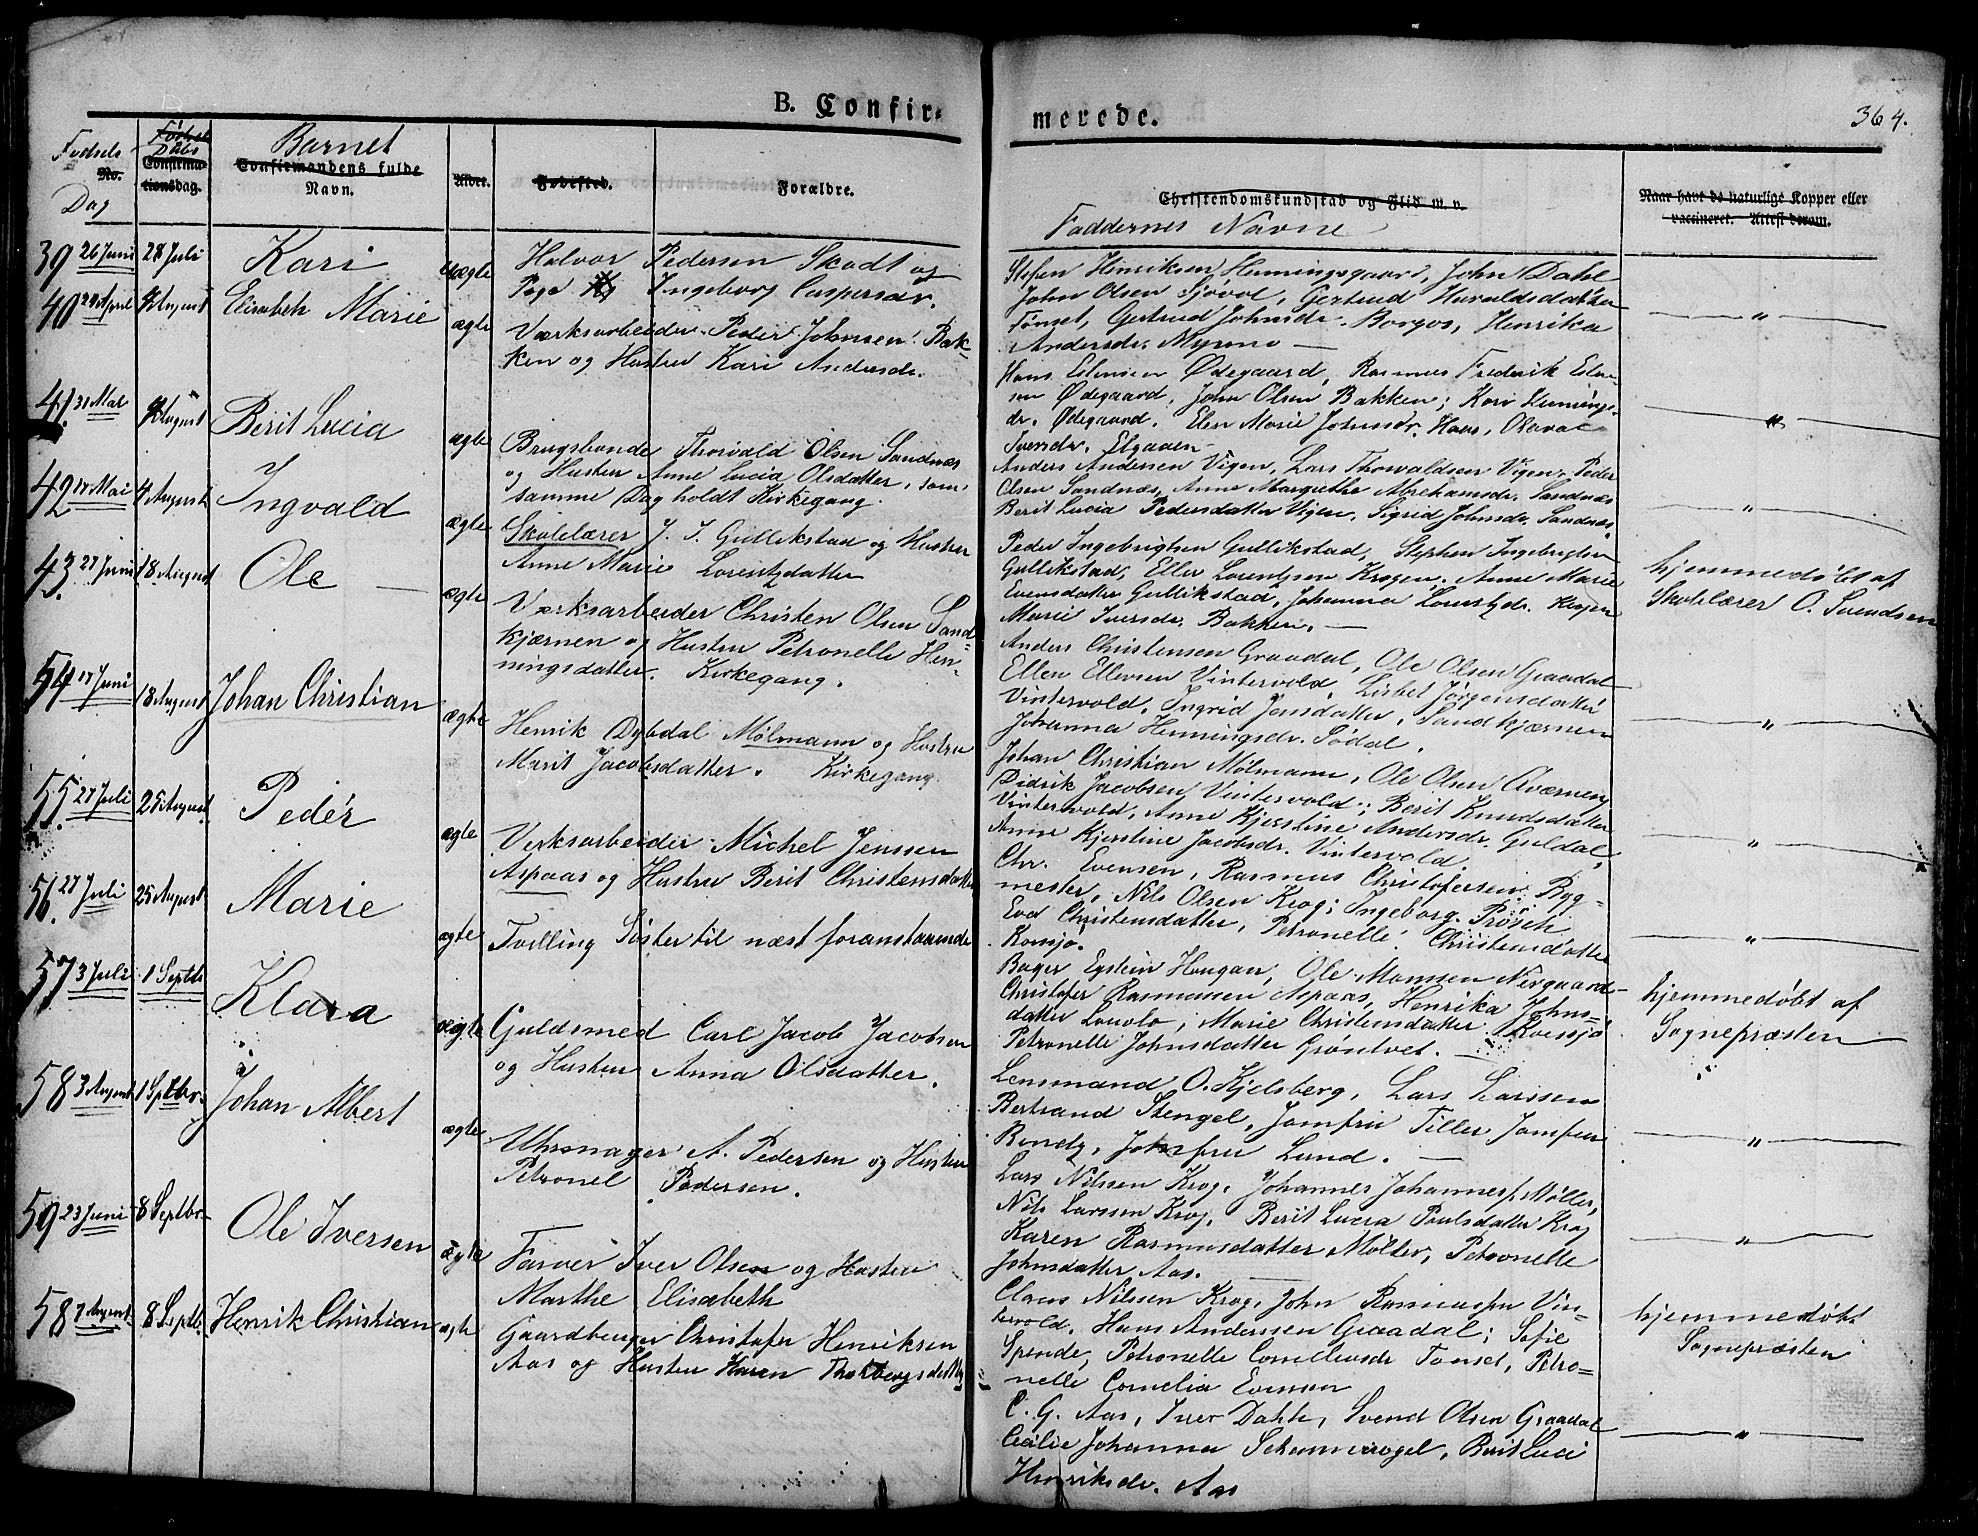 B. Confir-
merede.
364.
Fødsels
No.
Dag
Fødsel
Dåbs
Confirma-
tionsdag.
Barnet
Confirmandens fulde
Navn.
Alder.
Fødested.
Forældre.
Christendomskundskab og Flid m. v.
Faddernes Navne
Naar havt de naturlige Kopper eller
vaccineret. Attest derom.
39 26 Juni 28 Juli Kari uægte
Halvor Pedersen Skodt og
Pige Ingeborg Caspersdr.
Stefen Henriksen Henningsgaard, John Dahl
John Olsen Sjøvol, Gertrud Haraldsdatter
Tønset, Gertrud Johnsdr. Borgos, Henrika
Andersdr. Myrmo —
— " —
40 29 April 4 August Elisabeh Marie ægte
Værksarbeider Peder Johnsen Bak-
ken og Hustru Kari Andersdr.
Hans Estensen Ødegaard, Rasmus Frederik Esten-
sen Ødegaard, John Olsen Bakken; Kari Hennings-
dr. Ødegaard. Elen Marie Johnsdr. Haas, Olava
Iversdr. Elgaaen —
— " —
41. 31 Mai 4 August Berit Lucia ægte
Brugsbonde Thorvald Olsen Sandnæs
og Hustru Anne Lucia Olsdatter, som
samme Dag holdt Kirkegang.
Anders Andersen Vigen, Lars Thorvaldsen Vigen, Peder
Olsen Sandnæs, Anne Margrethe Abrahamsdr. Sandnæs
Berit Lucia Pedersdatter Vigen, Sigrid Johnsdr. Sandnæs
— " —
42 17 Mai 4 August Ingvald ægte
Skolelærer J. I. Gullikstad og Hustru
Anne Marie Lorentzdatter
Peder Ingebrigtsen Gullikstad, Stephen Ingebrigtsen
Gullikstad, Eller Lorentzsen Krogen. Anne Marie
Evensdatter Gullikstad, Johanna Lorentzdr. Krogen
Marie Iversdr. Bakken. —
hjemmedøbt af
Skolelærer O. Svendsen
43. 27 Juni 18 August Ole — ægte
Værksarbeider Christen Olsen Sand-
kjærnen og Hustru Petronelle Hen-
ningsdatter. Kirkegang.
Anders Christensen Graadal, Ole Olsen Graadal
Ellen Ellevsen Vintervold, Lisbet Jørgensdatter
Vintervold, Ingrid Jensdatter, Sandkjærnen
Johanna Henningsdr. Sødal.
— " —
54 17 Juni 18 August Johan Christian ægte
Henrik Dybdal Mølmann og Hustru
Marit Jacobsdatter. Kirkegang.
Johan Christian Mølmann, Ole Olsen Aværneng
Didrik Jacobsen Vintervold; Berit Knudsdatter
Vintervold, Anne Kjerstine Andersdr. Guldal,
Anne Kjerstine Jacobsdr. Vintervold.
— " —
55. 27 Juli 25 August Peder ægte
Verksarbeider Michel Jenssen
Aspaas og Hustru Berit Christensdatter
Chr. Evensen, Rasmus Christofersen Byg-
mester, Nils Olsen Krog; Ingeborg Prøsch
Eva Christensdatter, Petronelle Christensdatter
Korsjø.
— " —
56. 27 Juli 25 August Marie ægte
Tvilling Søster til næst foranstaaende
Bager Eystein Hougan, Ole Monssen Nergaard
Christofer Rasmussen Aspaas, Henrika Johns-
datter Louolo; Marie Christensdatter Korssjø
Petronelle Johnsdatter Grøntvet. —
hjemmedøbt af
Sognepræsten
57 3 Juli 1 Septb. Klara ægte
Guldsmed Carl Jacob Jacobsen
og Hustru Anna Olsdatter.
Lensmand O. Kjelsberg, Lars Larssen
Bertrand Stengel, Jomfru Tiller Jomfru
Rindy, Jomfru Lund. —
— " —
58 3 August 1 Sptbr. Johan Albert ægte
Uhrmager A. Pedersen og Hustru
Petronel Pedersen.
Lars Nilssen Krog, Johannes Johannesf. Møller,
Nils Larssen Krog, Berit Lucia Poulsdatter Krog
Karen Rasmusdatter Møller, Petronelle
Johnsdatter Aas. —
— " —
59 23 Juni 8 Septbr. Ole Iversen ægte
Farver Iver Olsen og Hustru
Marthe Elisabeth
Claus Nilssen Krog, John Rasmussen Vin-
tervold, Hans Anderssen Graadal; Sofie
Spende, Petronelle Corneliusdr Tonset, Petro-
nelle Cornelia Evensen
hjemmedøbt
Sognepræsten
58 7 August 8 Septb. Henrik Christian ægte
Gaardberger Christofer Henriksen
Aas og Hustru Karen Tholbergsdatter
C. G. Aas, Iver Dahl, Svend Olsen Graadal
Cecilie Johanna Schammvogel, Berit Luci
Henriksdr. Aas
— " —